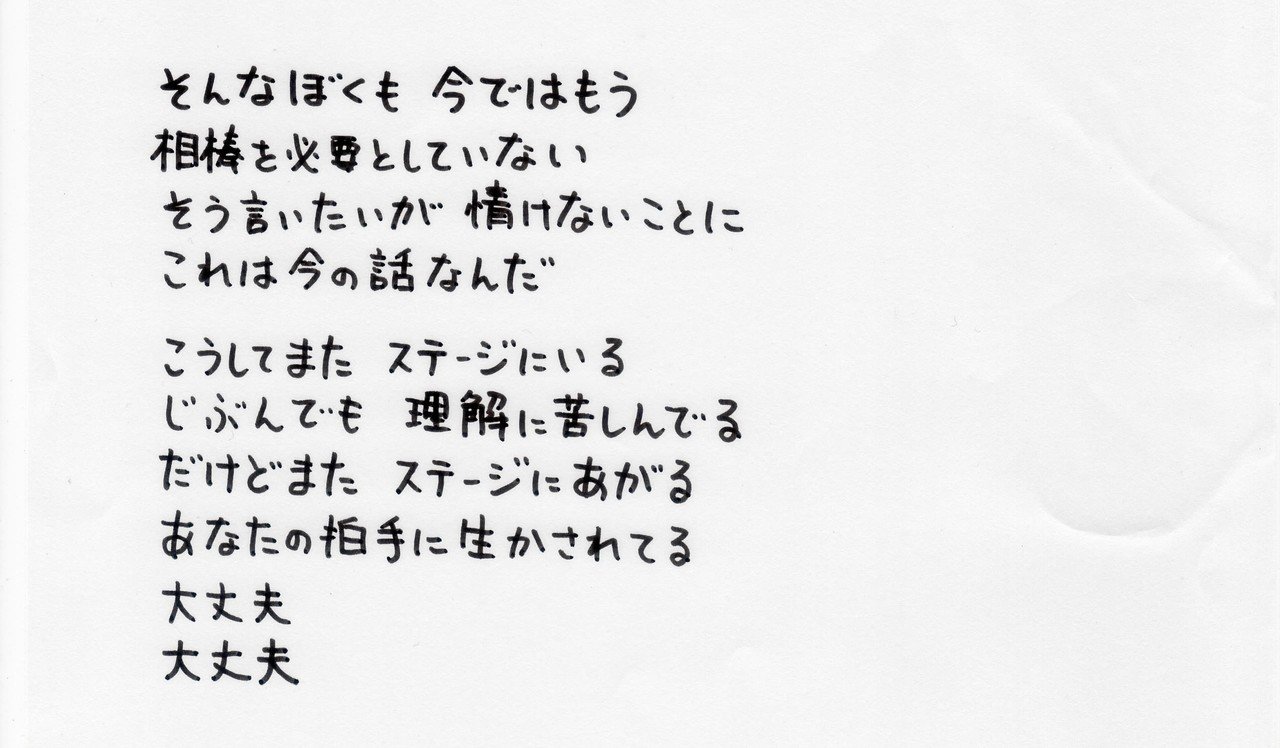 そんなぼくも 今ではもう
相棒を必要としていない
そう言いたいが 情けないことに
これは今の話なんだ
こうしてまた ステージにいる
じぶんでも 理解に苦しんでる
だけどまた ステージにあがる
あなたの拍手に生かされてる
大丈夫
大丈夫